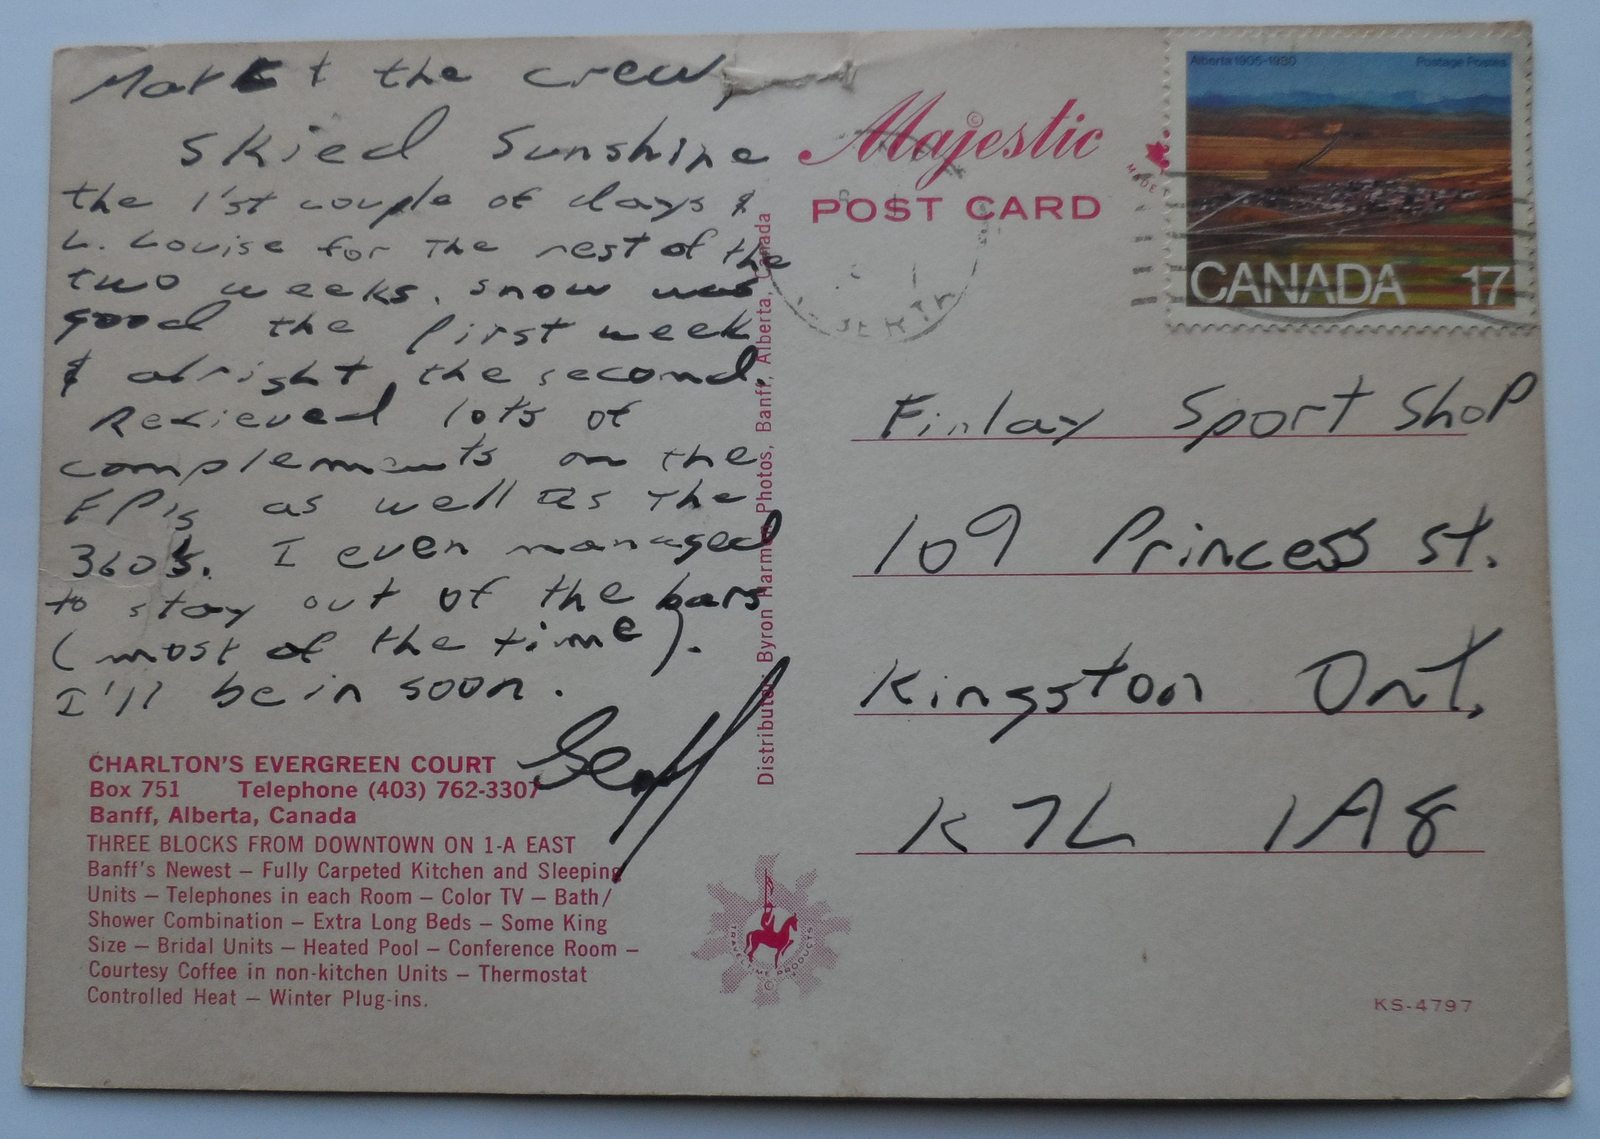 Mark + the crew,
Skied Sunshine
the 1'st couple of days &
L. Louise for the rest of the
two weeks. snow was
good the first week
& alright the second.
Recieved lots of
complements on the
FP's as well as the
360's. I even managed
to stay out of the bars
(most of the time).
I'll be in soon.
Geoff
CHARLTON'S EVERGREEN COURT
Box 751 Telephone (403) 762-3307
Banff, Alberta, Canada
THREE BLOCKS FROM DOWNTOWN ON 1-A EAST
Banff's Newest – Fully Carpeted Kitchen and Sleeping
Units – Telephones in each Room – Color TV – Bath/
Shower Combination – Extra Long Beds – Some King
Size – Bridal Units – Heated Pool – Conference Room –
Courtesy Coffee in non-kitchen Units – Thermostat
Controlled Heat – Winter Plug-ins.
Distributor: Byron Harmon Photos, Banff, Alberta, Canada
Majestic ©
POST CARD
MADE
Alberta 1905-1980 Postage Postes
CANADA 17
Finlay Sport Shop
109 Princess St.
Kingston Ont.
K7L 1A8
PRODUCTS
KS-4797